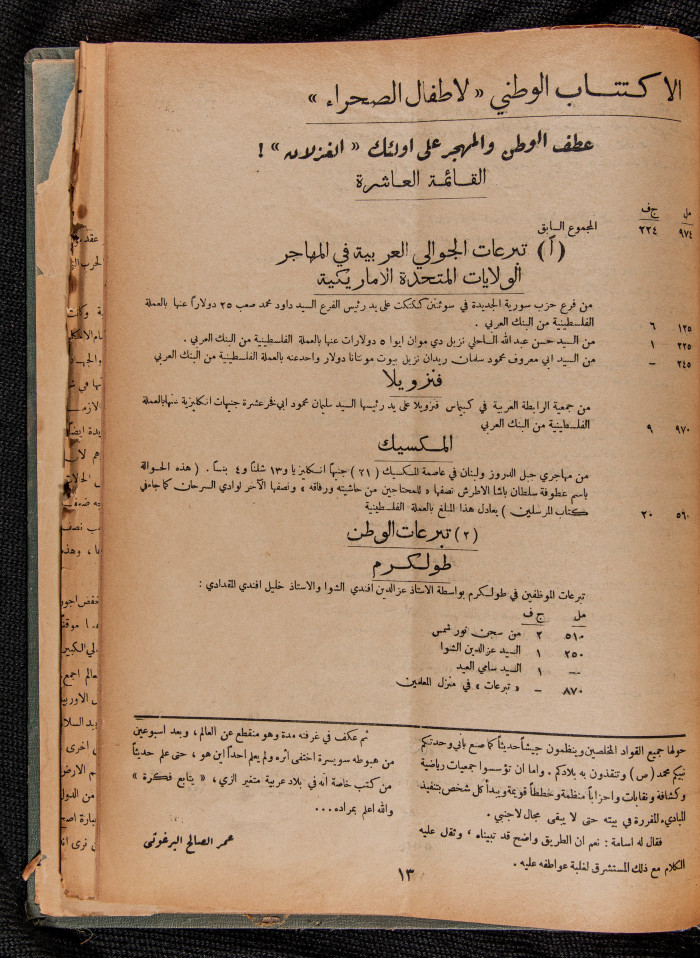 الاكتتاب الوطني « لاطفال الصحراء »
عطف الوطن والمهجر على اولئك « الغزلان » !
القائمة العاشرة
مل ج ف
٩٧٤ ٢٢٤ المجموع السابق
(أ) تبرعات الجوالي العربية في المهاجر
الولايات المتحدة الاماريكية
من فرع حزب سورية الجديدة في سوئنتن ككنتكت على يد رئيس الفرع السيد داود محمد صعب ٢٥ دولاراً عنها بالعملة
١٢٥ ٦ الفلسطينية من البنك العربي .
٢٢٥ ١ من السيد حسن عبد الله الساحلي نزيل دي موان ايوا ٥ دولارات عنها بالعملة الفلسطينية من البنك العربي .
٢٤٥ – من السيد ابي معروف محمود سلمان ريدان نزيل بيوت مونتانا دولار واحد عنه بالعملة الفلسطينية من البنك العربي
فنزويلا
من جمعية الرابطة العربية في كيباس فنزويلا على يد رئيسها السيد سليمان محمود ابي فخر عشرة جنيهات انكليزية عنها بالعملة
٩٧٠ ٩ الفلسطينية من البنك العربي
المكسيك
من مهاجري جبل الدروز ولبنان في عاصمة المكسيك ( ٢١ ) جنيهاً انكليزيا و١٣ شلناً و٤ بنساً . ( هذه الحوالة
باسم عطوفة سلطان باشا الاطرش نصفها « للمحتاجين من حاشيته ورفاقه » ونصفها الآخر لوادي السرحان كما جاء في
٥٦٠ ٢٠ كتاب المرسلين ) يعادل هذا المبلغ بالعملة الفلسطينية
(٢) تبرعات الوطن
طولكرم
تبرعات الموظفين في طولكرم بواسطة الاستاذ عز الدين افندي الشوا والاستاذ خليل افندي المقدادي :
مل ج ف
٥١٠ ٢ من سجن نور شمس
٢٥٠ ١ السيد عز الدين الشوا
— ١ السيد سامي العيد
٨٧٠ – « تبرعات » في منزل المعلمين
حولها جميع القواد المخلصين وينظمون جيشاً حديثاً كما صنع بأني وحدتكم
نبيكم محمد ( ص ) وتنقذون به بلادكم . واما ان تؤسسوا جمعيات رياضية
وكشافة ونقابات واحزاباً منظمة وخططاً قويمة ويبدأ كل شخص بتنفيذ
المباديء المقررة في بيته حتى لا يبقى مجال لاجنبي .
فقال له اسامة : نعم ان الطريق واضح قد تبيناه ، وثقل عليه
الكلام مع ذلك المستشرق لغلبة عواطفه عليه .
ثم عكف في غرفته مدة وهو منقطع عن العالم ، وبعد اسبوعين
من هبوطه سويسرة اختفى أثره ولم يعلم احد اين هو ، حتى علم حديثاً
من كتب خاصة انه في بلاد عربية متغير الزي ، « يتابع فكرة »
والله اعلم بمراده ...
عمر الصالح البرغوثي
١٣